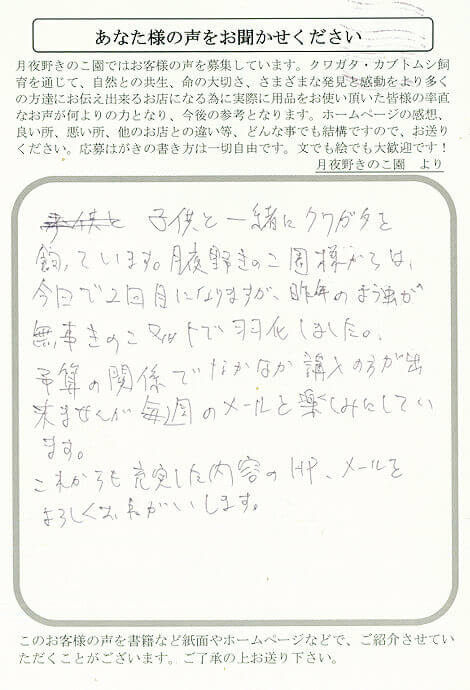 あなた様の声をお聞かせください
月夜野きのこ園ではお客様の声を募集しています。クワガタ・カブトムシ飼
育を通じて、自然との共生、命の大切さ、さまざまな発見と感動をより多く
の方達にお伝え出来るお店になる為に実際に用品をお使い頂いた皆様の率直
なお声が何よりの力となり、今後の参考となります。ホームページの感想、
良い所、悪い所、他のお店との違い等、どんな事でも結構ですので、お送り
ください。応募はがきの書き方は一切自由です。文でも絵でも大歓迎です！
月夜野きのこ園　より
子供と 子供と一緒にクワガタを
飼っています。月夜野きのこ園様からは、
今回で2回目になりますが、昨年のよう虫が
無事きのこマットで羽化しました。
予算の関係でなかなか購入の方が出
来ませんが毎週のメールを楽しみにしてい
ます。
これからも充実した内容のHP、メールを
よろしくおねがいします。
このお客様の声を書籍など紙面やホームページなどで、ご紹介させてい
ただくことがございます。ご了承の上お送り下さい。